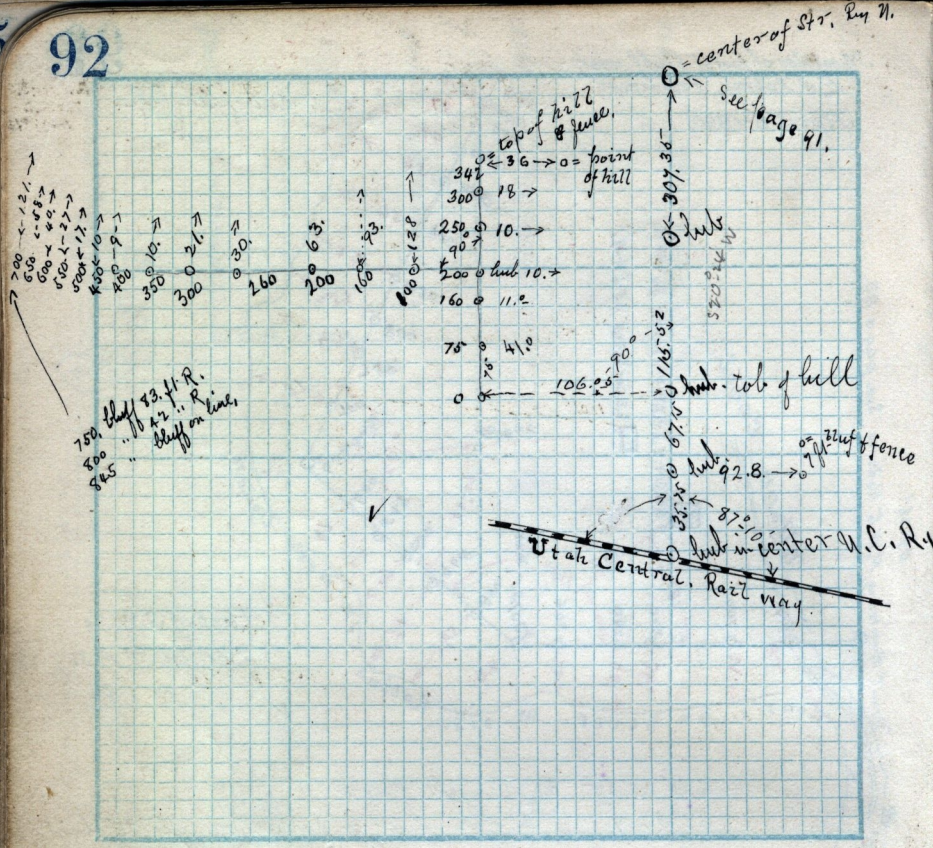 92
= center of Str.
See page 91.
= top of hill
& fence.
342
← 36 → o = point
of hill
300 18 →
250 10. →
90°
200 hub 10. →
160 11.0
75 41.0
75
0
106.05
90°
307.35
hub
S20°24W
115.52
hub. top of hill
67.5
hub 92.8. →
fence
35.75
87°10
hub in center U.C. R.
Utah Central. Rail way.
700 ← 121. →
650 ← 58 →
600 ← 40. →
550 ← 27 →
500 ← 17. →
450 ← 10 →
400 9 →
350 10. →
300 21. →
260 30. →
200 63.
160 93. →
100 ← 128 →
750, bluff 83. ft R.
800 " 42 " R.
845 " bluff on line,